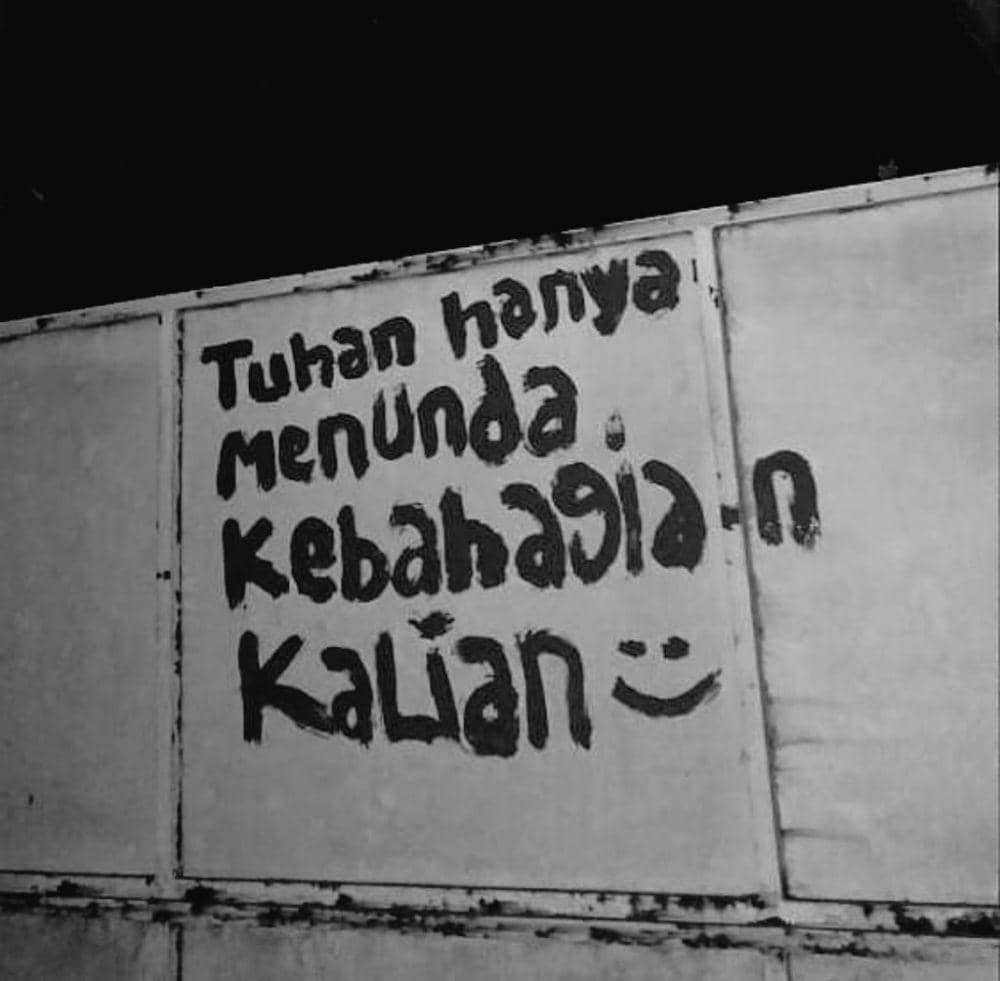 Tuhan hanya
menunda
kebahagia-n
kalian :)